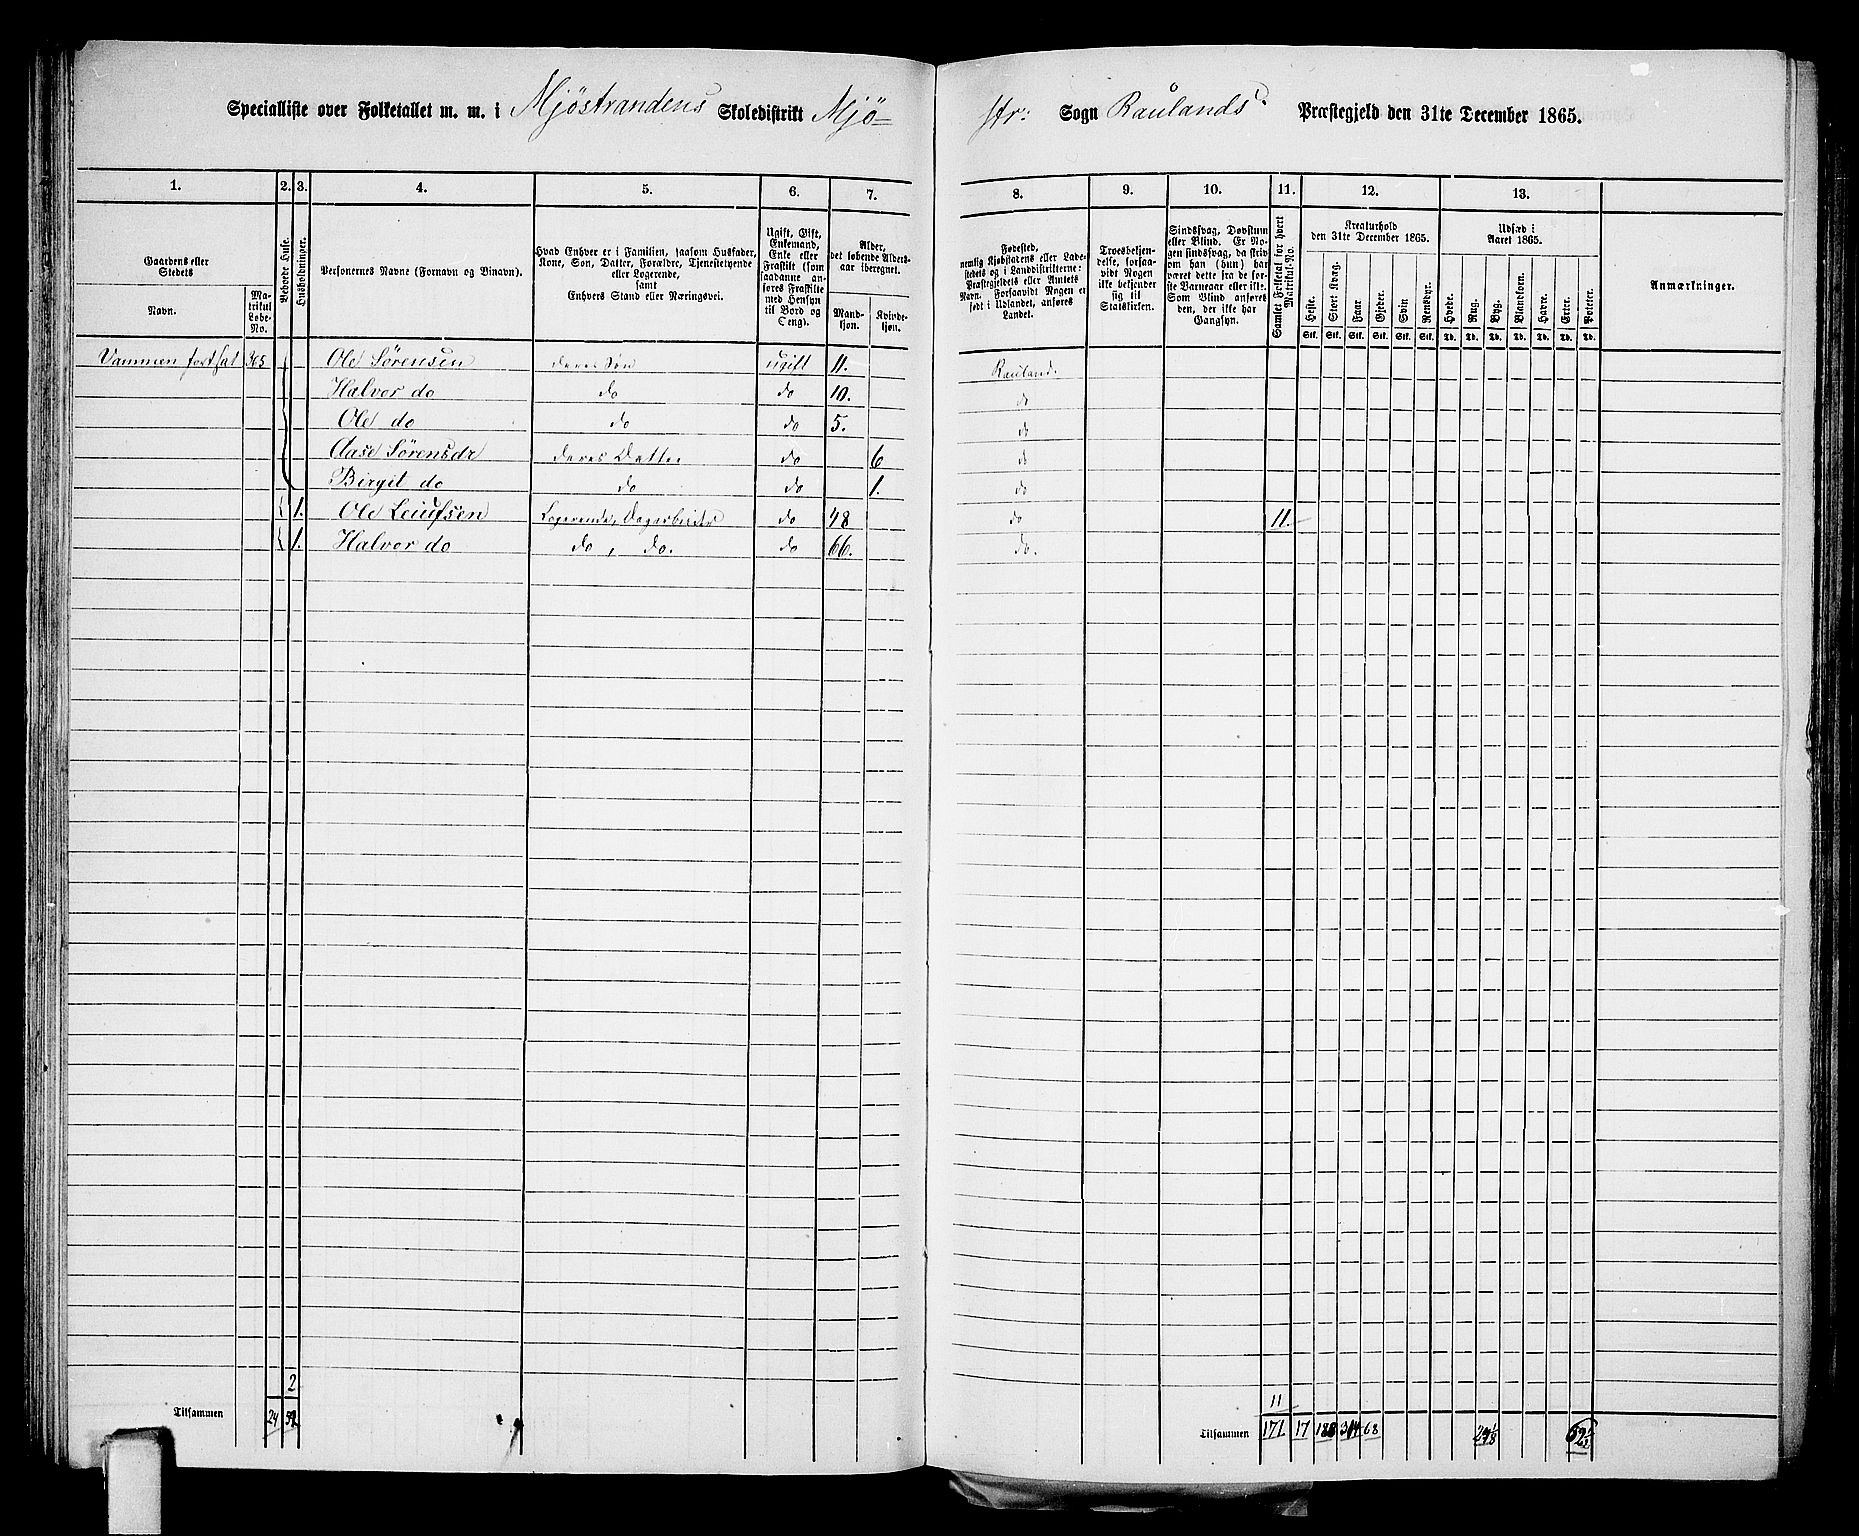 Specialliste over Folketallet m. m. i Mjöstrandens Skoledistrikt Mjö-
str: Sogn Raulands Præstegjeld den 31te December 1865.
1. 2. 3. 4. 5. 6. 7. 8. 9. 10. 11. 12. 13.
Gaardens eller Stedets
Navn.
Matrikul Løbe-No.
Beboede Huse.
Husholdninger.
Personernes Navne (Fornavn og Binavn).
Hvad Enhver er i Familien, saasom Husfader,
Kone, Søn, Datter, Forældre, Tjenestetyende
eller Logerende,
samt
Enhvers Stand eller Næringsvei.
Ugift, Gift,
Enkemand,
Enke eller
Fraskilt (som
saadanne an-
føres Fraskilte
med Hensyn
til Bord og
Seng).
Alder,
det løbende Alders-
aar iberegnet.
Mand-
kjøn.
Kvinde-
kjøn.
Fødested,
nemlig Kjøbstadens eller Lade-
stedets og i Landdistrikterne:
Præstegjeldets eller Amtets
Navn. Forsaavidt Nogen er
født i Udlandet, anføres
Landet.
Troesbekjen-
delse, forsaa-
vidt Nogen
ikke bekjender
sig til
Statskirken.
Sindssvag, Døvstum
eller Blind. Er No-
gen sindssvag, da skriv
om han (hun) har
været dette fra de før-
ste Barneaar eller ikke.
Som Blind anføres
den, der ikke har
Gangsyn.
Samlet Folketal for hvert
Matrikul-No.
Kreaturhold
den 31te December 1865.
Heste. Stort Kvæg. Faar Gjeder. Svin Rensdyr.
Stk. Stk. Stk. Stk. Stk. Stk.
Udsæd i
Aaret 1865.
Hvede. Rug. Byg. Blandkorn. Havre. Erter. Poteter.
Td. Td. Td. Td. Td. Td. Td.
Anmærkninger.
Vammen fortsat 365 Ole Sörensen deres Sön ugift 11. Rauland.
Halvor do do do 10. do
Ole do do do 5. do
Aase Sörensdr deres Datter do 6 do
Birgit do do do 1. do
1. Ole Leiufsen Logerende, Dagarbeider do 48 do 11.
1. Halvor do do, do. do 66. do.
2
Tilsammen 24
11
Tilsammen 171 17 188 314 68